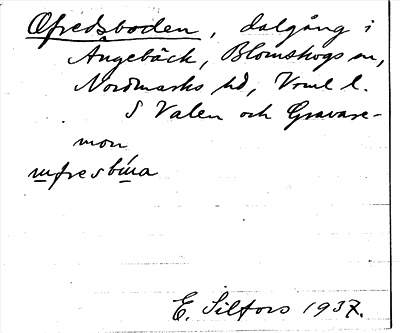 Öfredsboden, dalgång i
Ängebäck, Blomskogs sn,
Nordmarks hd, Vrml l.
S Valen och Gravare-
mon
E. Silfors 1937.